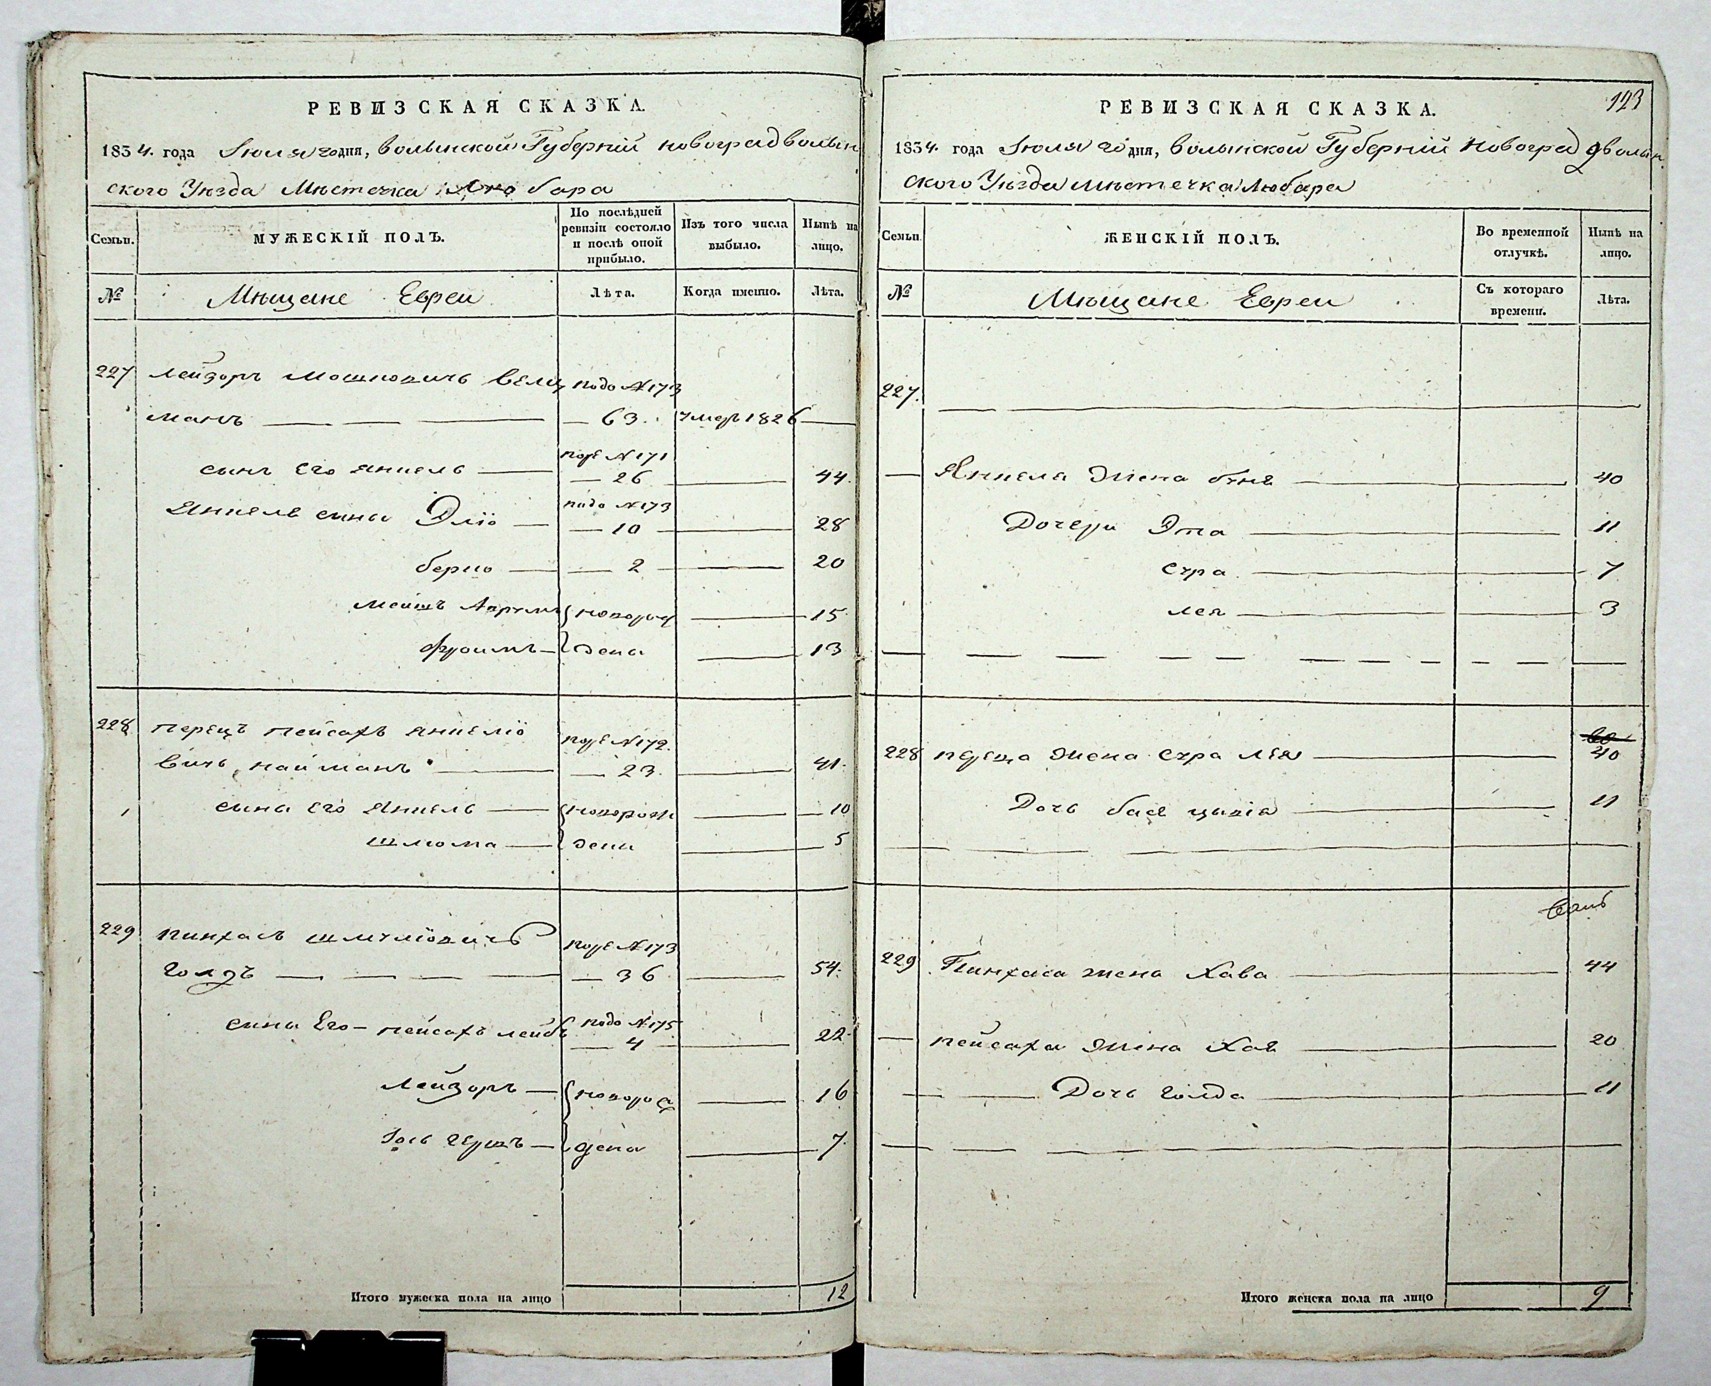 РЕВИЗСКАЯ СКАЗКА.
1834. года Іюля дня, волынской Губерніи новоградволын
ского Уѣзда Мѣстечка Любара
Семьи.
МУЖЕСКІЙ ПОЛЪ.
По послѣдней ревизіи состояло и послѣ оной прибыло.
Изъ того числа выбыло.
Нынѣ на лицо.
№
Мѣщане Евреи
Лѣта.
Когда именно.
Лѣта.
227 лейзоръ мошковичь подо №173
манъ 63. умеръ 1826
сынъ его янкель подъ №171 26 44.
Янкеля сыны Эліо подо №173 10 28
берко 2 20
новорож 15
фроимъ дены 13
228 перецъ пейсахъ янкеліо подъ №172.
вичь найманъ 23. 41.
сыны его Янкель новорож 10
шлиома дени 5
229 пинхасъ шмулiовичъ подъ №173
голдъ 36 54.
сыны Его пейсахъ лейбъ подо №175 4 22
лейзоръ новорож 16
гершъ дена 7.
Итого мужеска пола на лицо 12
123
РЕВИЗСКАЯ СКАЗКА.
1834. года Іюля дня, волынской Губерніи Новоград волын
ского Уѣзда мѣстечка Любара
Семьи.
ЖЕНСКІЙ ПОЛЪ.
Во временной отлучкѣ.
Нынѣ на лицо.
№
Мѣщане Евреи
Съ котораго времени.
Лѣта.
227.
Янкеля жена буня 40
Дочери Эта 11
сура 7
лея 3
228 переца жена сура лея 40
Дочь бася цывія 11
229 Пинхаса жена Хава 44
пейсаха жена Хая 20
Дочь голда 11
Итого женска пола на лицо 9